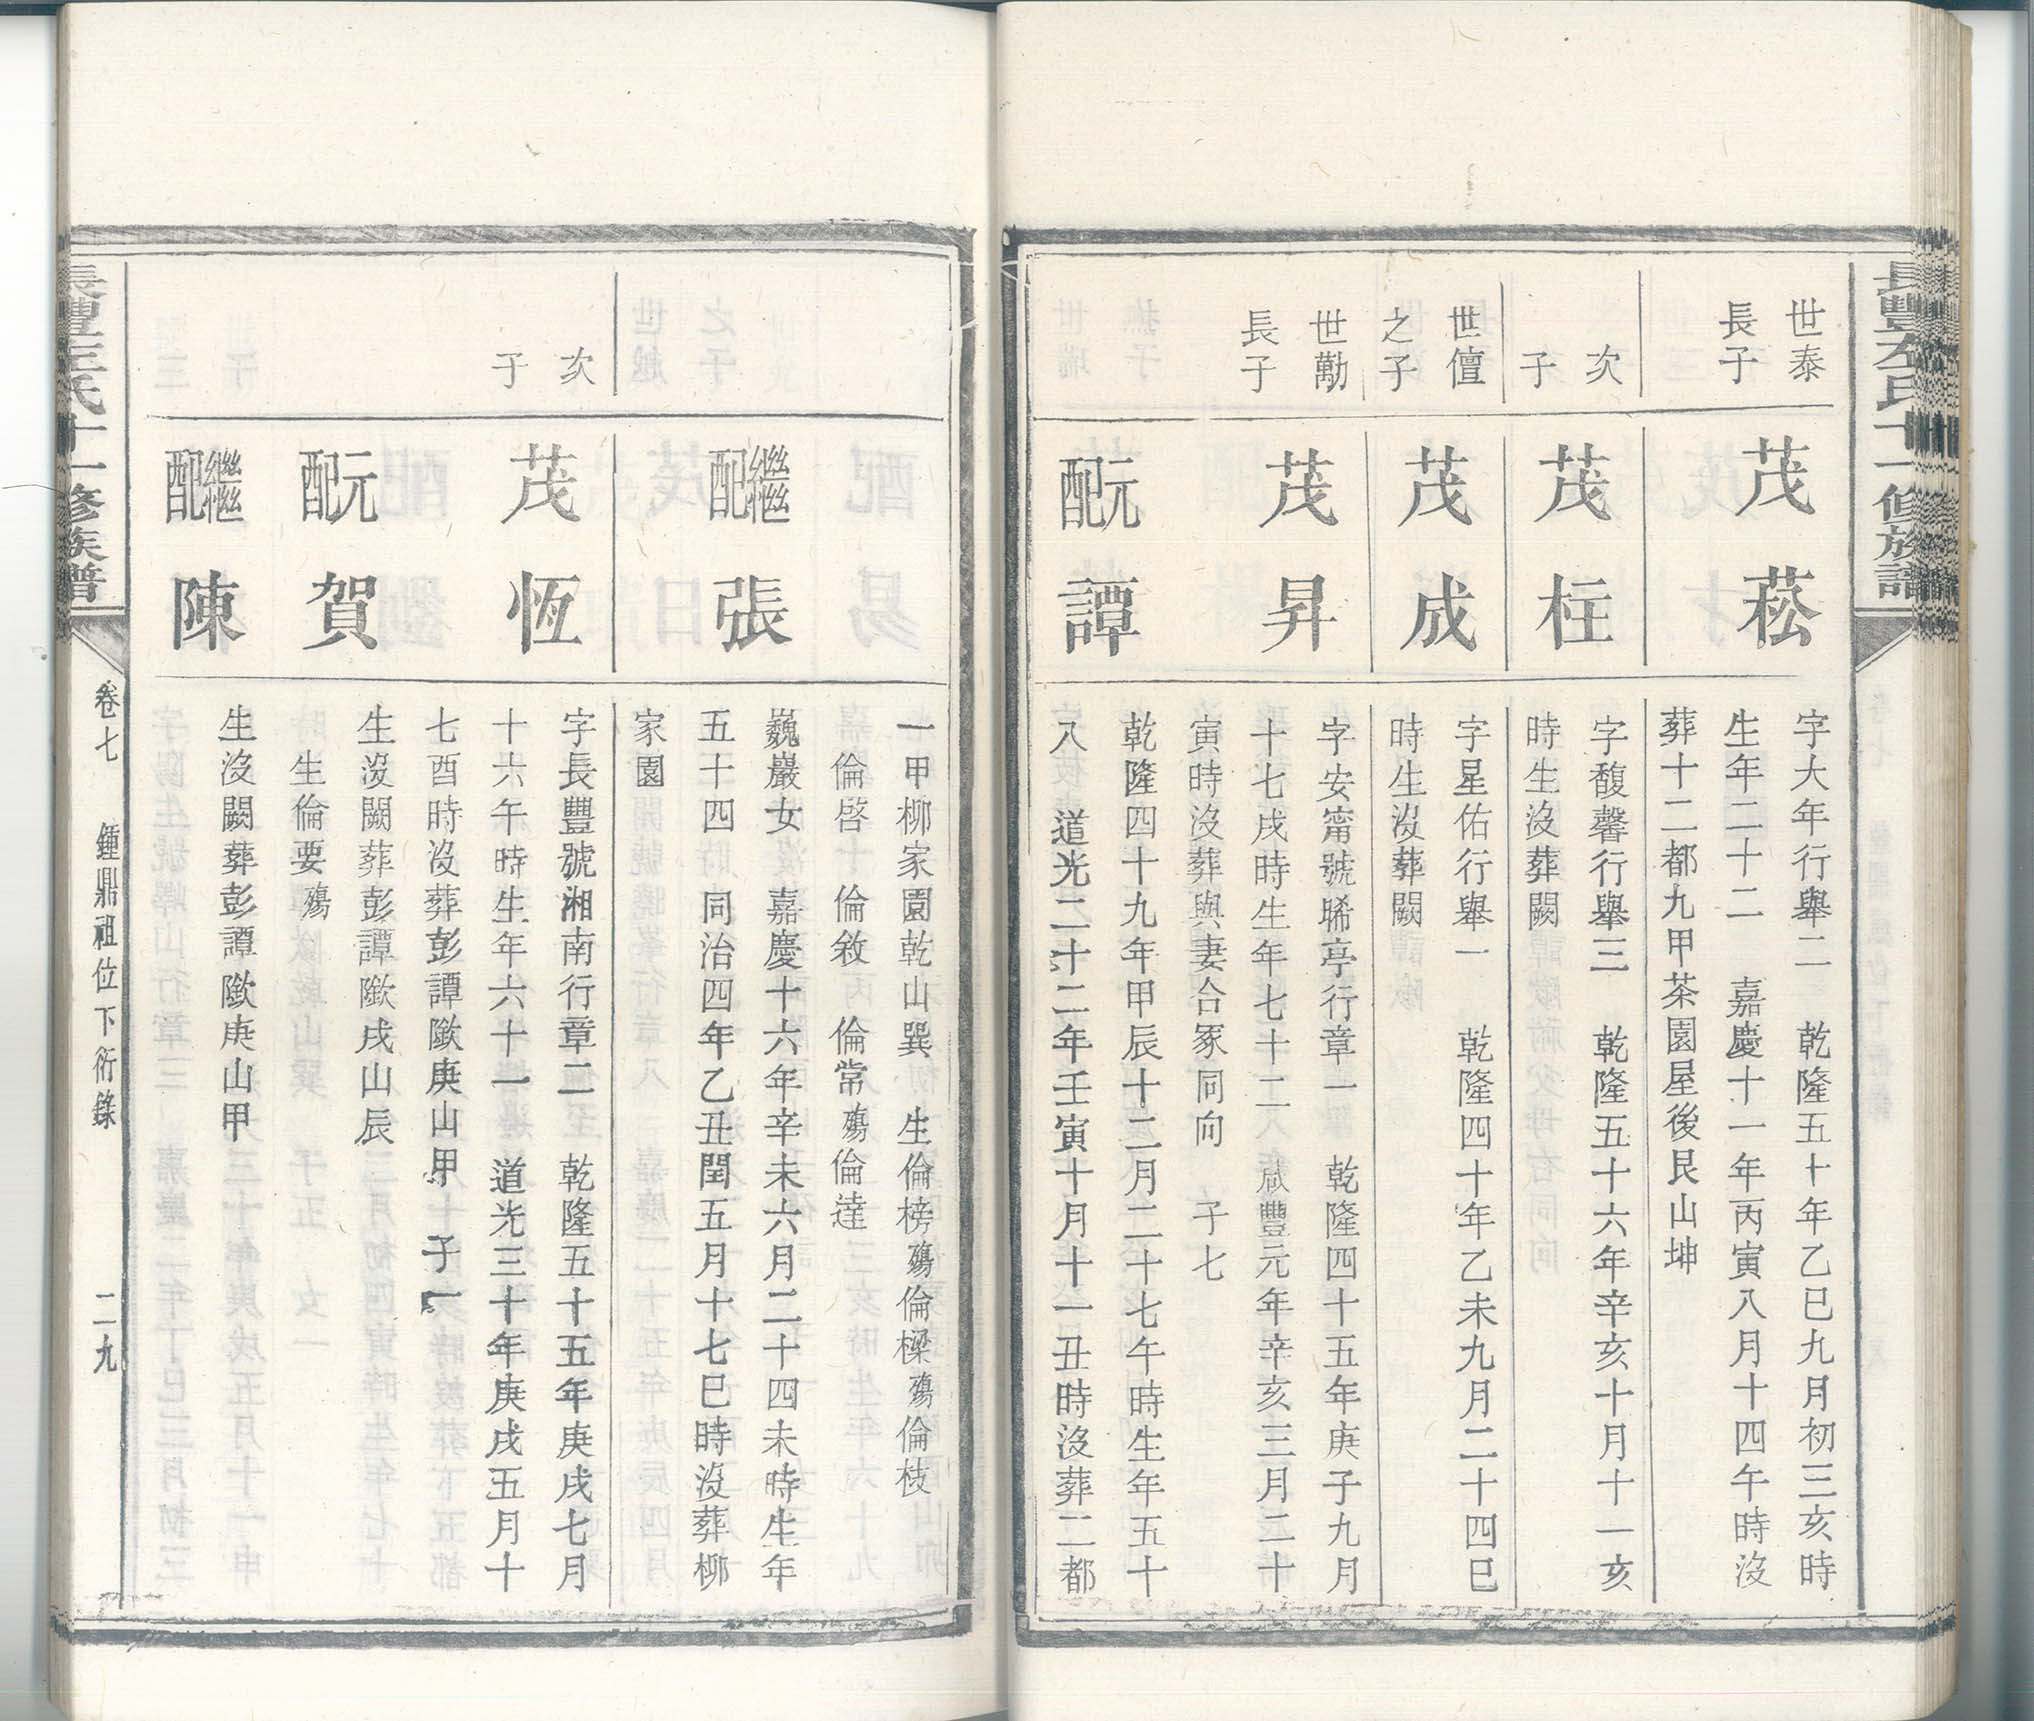 長豐左氏十一修族譜
世泰
長子
茂菘
字大年行舉二　乾隆五十年乙巳九月初三亥時
生年二十二　嘉慶十一年丙寅八月十四午時沒
葬十二都九甲茶園屋後艮山坤
次
子
茂柱
字馥馨行舉三　乾隆五十六年辛亥十月十一亥
時生沒葬闕
世儃
之子
茂成
字星佑行舉一　乾隆四十年乙未九月二十四巳
時生沒葬闕
世勱
長子
茂昇
字安甯號晞亭行章一　乾隆四十五年庚子九月
十七戌時生年七十二　咸豐元年辛亥三月二十
寅時沒葬與妻合冢同向　子七
元配
譚
乾隆四十九年甲辰十二月二十七午時生年五十
八　道光二十二年壬寅十月十一丑時沒葬二都
一甲柳家園乾山巽　生倫榜殤倫樑殤倫枝
倫啓　倫敘　倫常殤倫達
繼配
張
巍巖女　嘉慶十六年辛未六月二十四未時生年
五十四　同治四年乙丑閏五月十七巳時沒葬柳
家園
次
子
茂恆
字長豐號湘南行章二　乾隆五十五年庚戌七月
十六午時生年六十一　道光三十年庚戌五月十
七酉時沒葬彭譚歟庚山甲　子一
元配
賀
生沒闕葬彭譚歟戌山辰
生倫要殤
繼配
陳
生沒闕葬彭譚歟庚山甲
長豐左氏十一修族譜
卷七　鍾鼎祖位下衍錄　二九